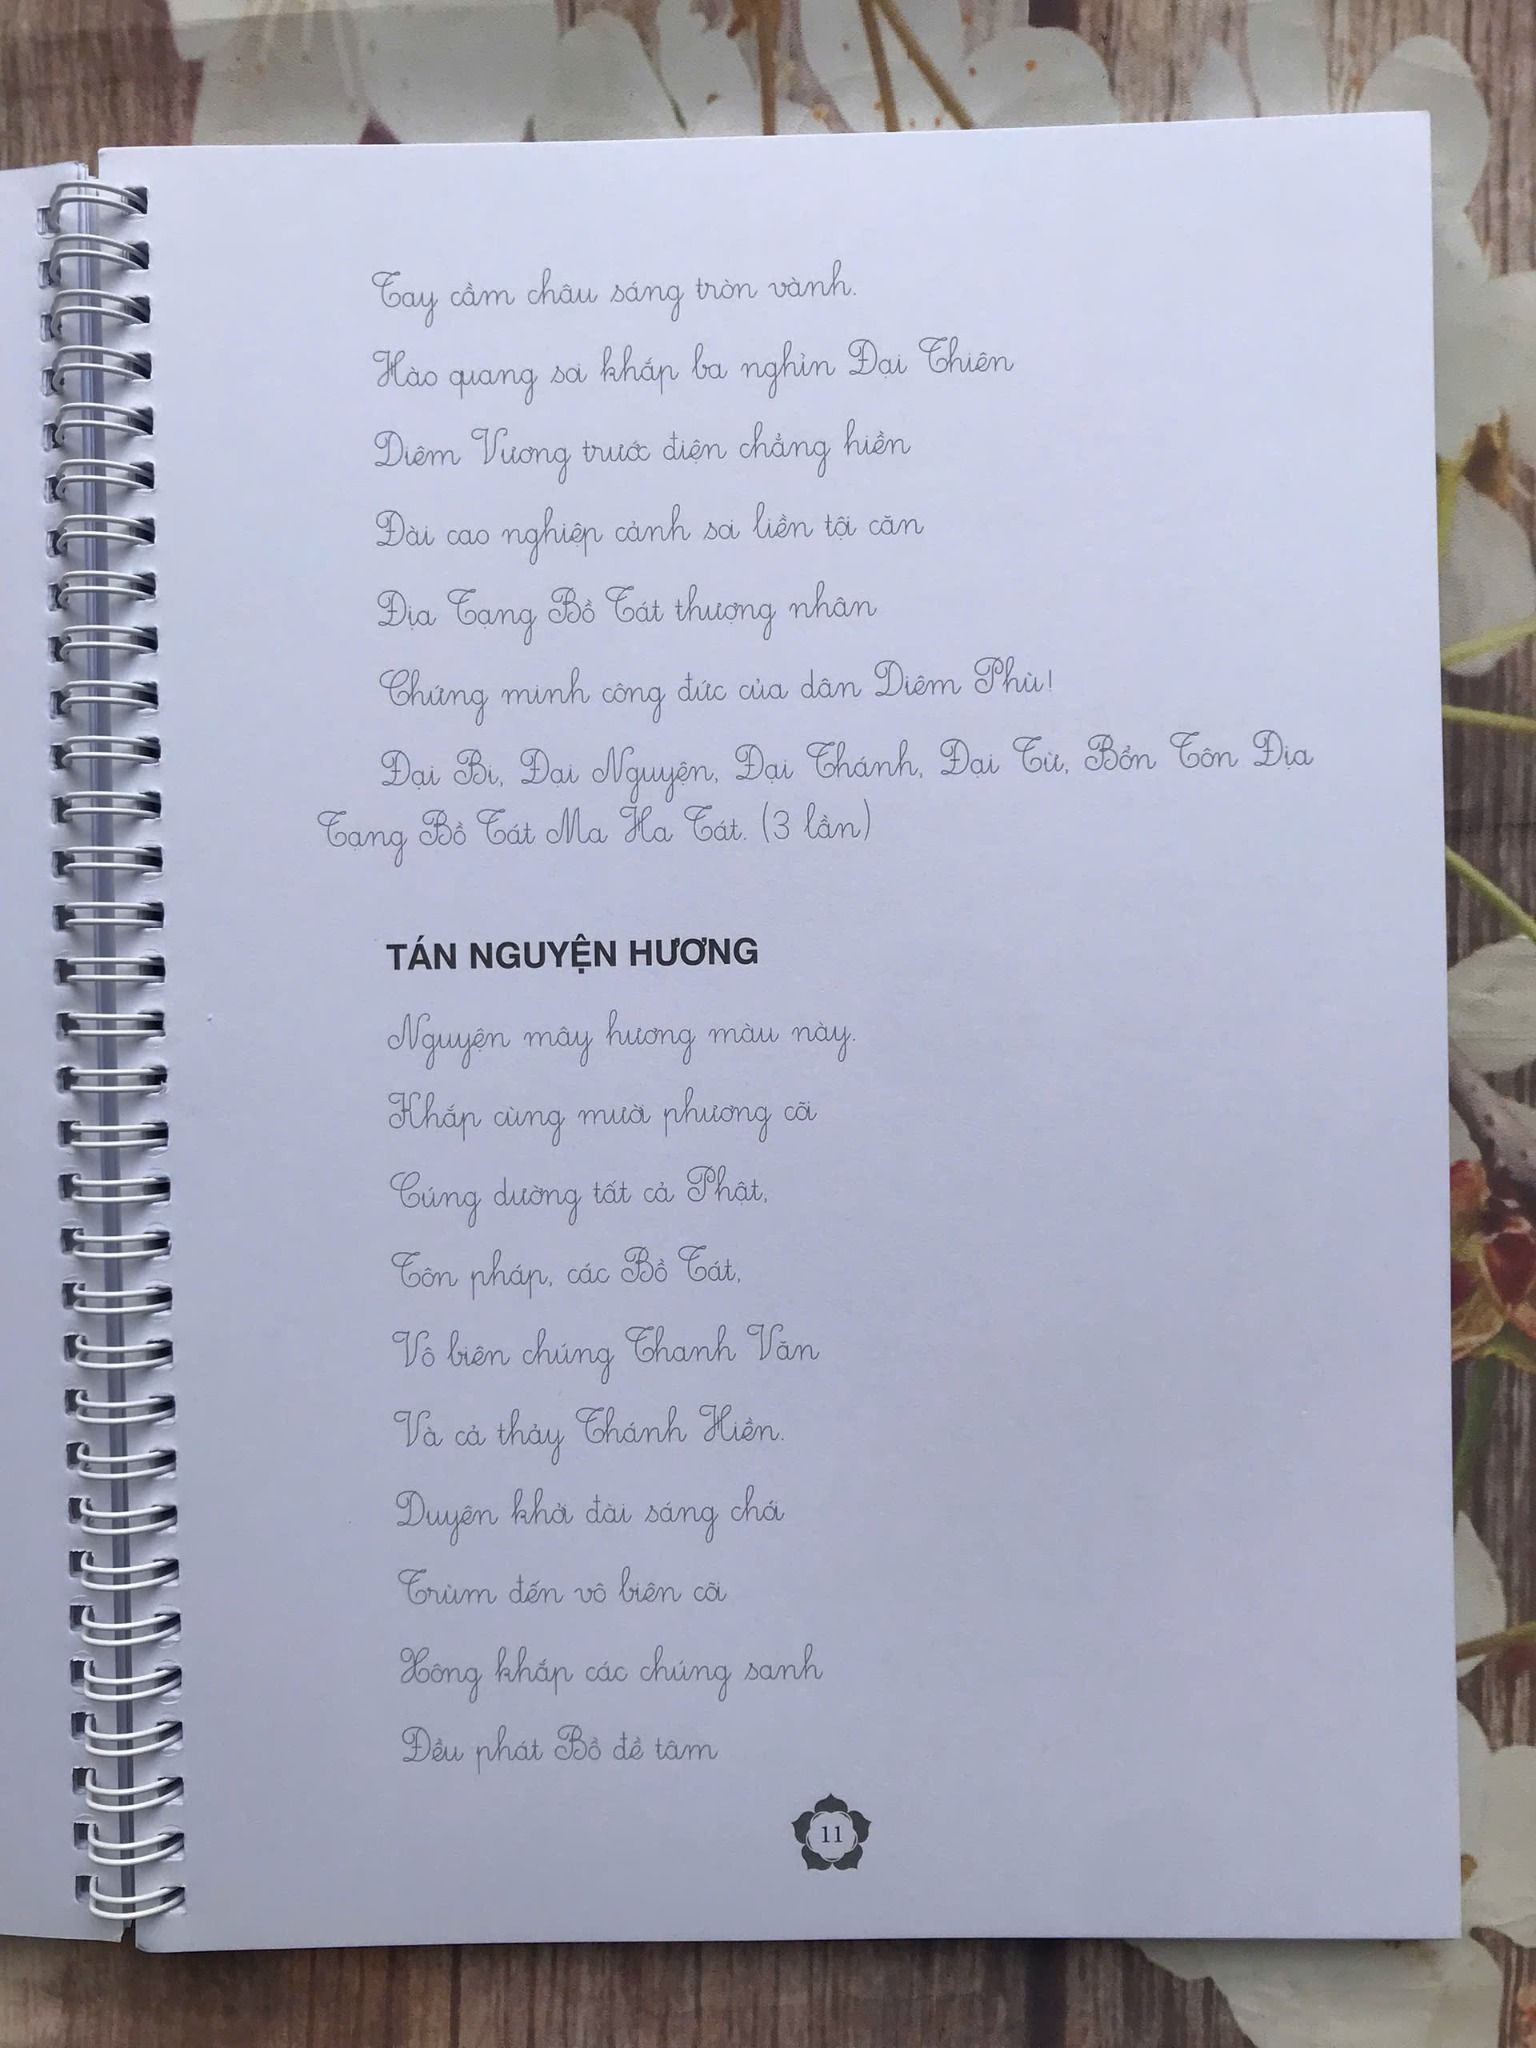 Tay cầm châu sáng tròn vành.
Hào quang soi khắp ba nghìn Đại Thiên
Diêm Vương trước điện chẳng hiền
Đài cao nghiệp cảnh soi liền tội căn
Địa Tạng Bồ Tát thượng nhân
Chứng minh công đức của dân Diêm Phù!
Đại Bi, Đại Nguyện, Đại Thánh, Đại Từ, Bổn Tôn Địa
Tạng Bồ Tát Ma Ha Tát. (3 lần)
TÁN NGUYỆN HƯƠNG
Nguyện mây hương màu này.
Khắp cùng mười phương cõi
Cúng dường tất cả Phật,
Tôn pháp, các Bồ Tát,
Vô biên chúng Thanh Văn
Và cả thảy Thánh Hiền.
Duyên khởi đài sáng chói
Trùm đến vô biên cõi
Xông khắp các chúng sanh
Đều phát Bồ đề tâm
11